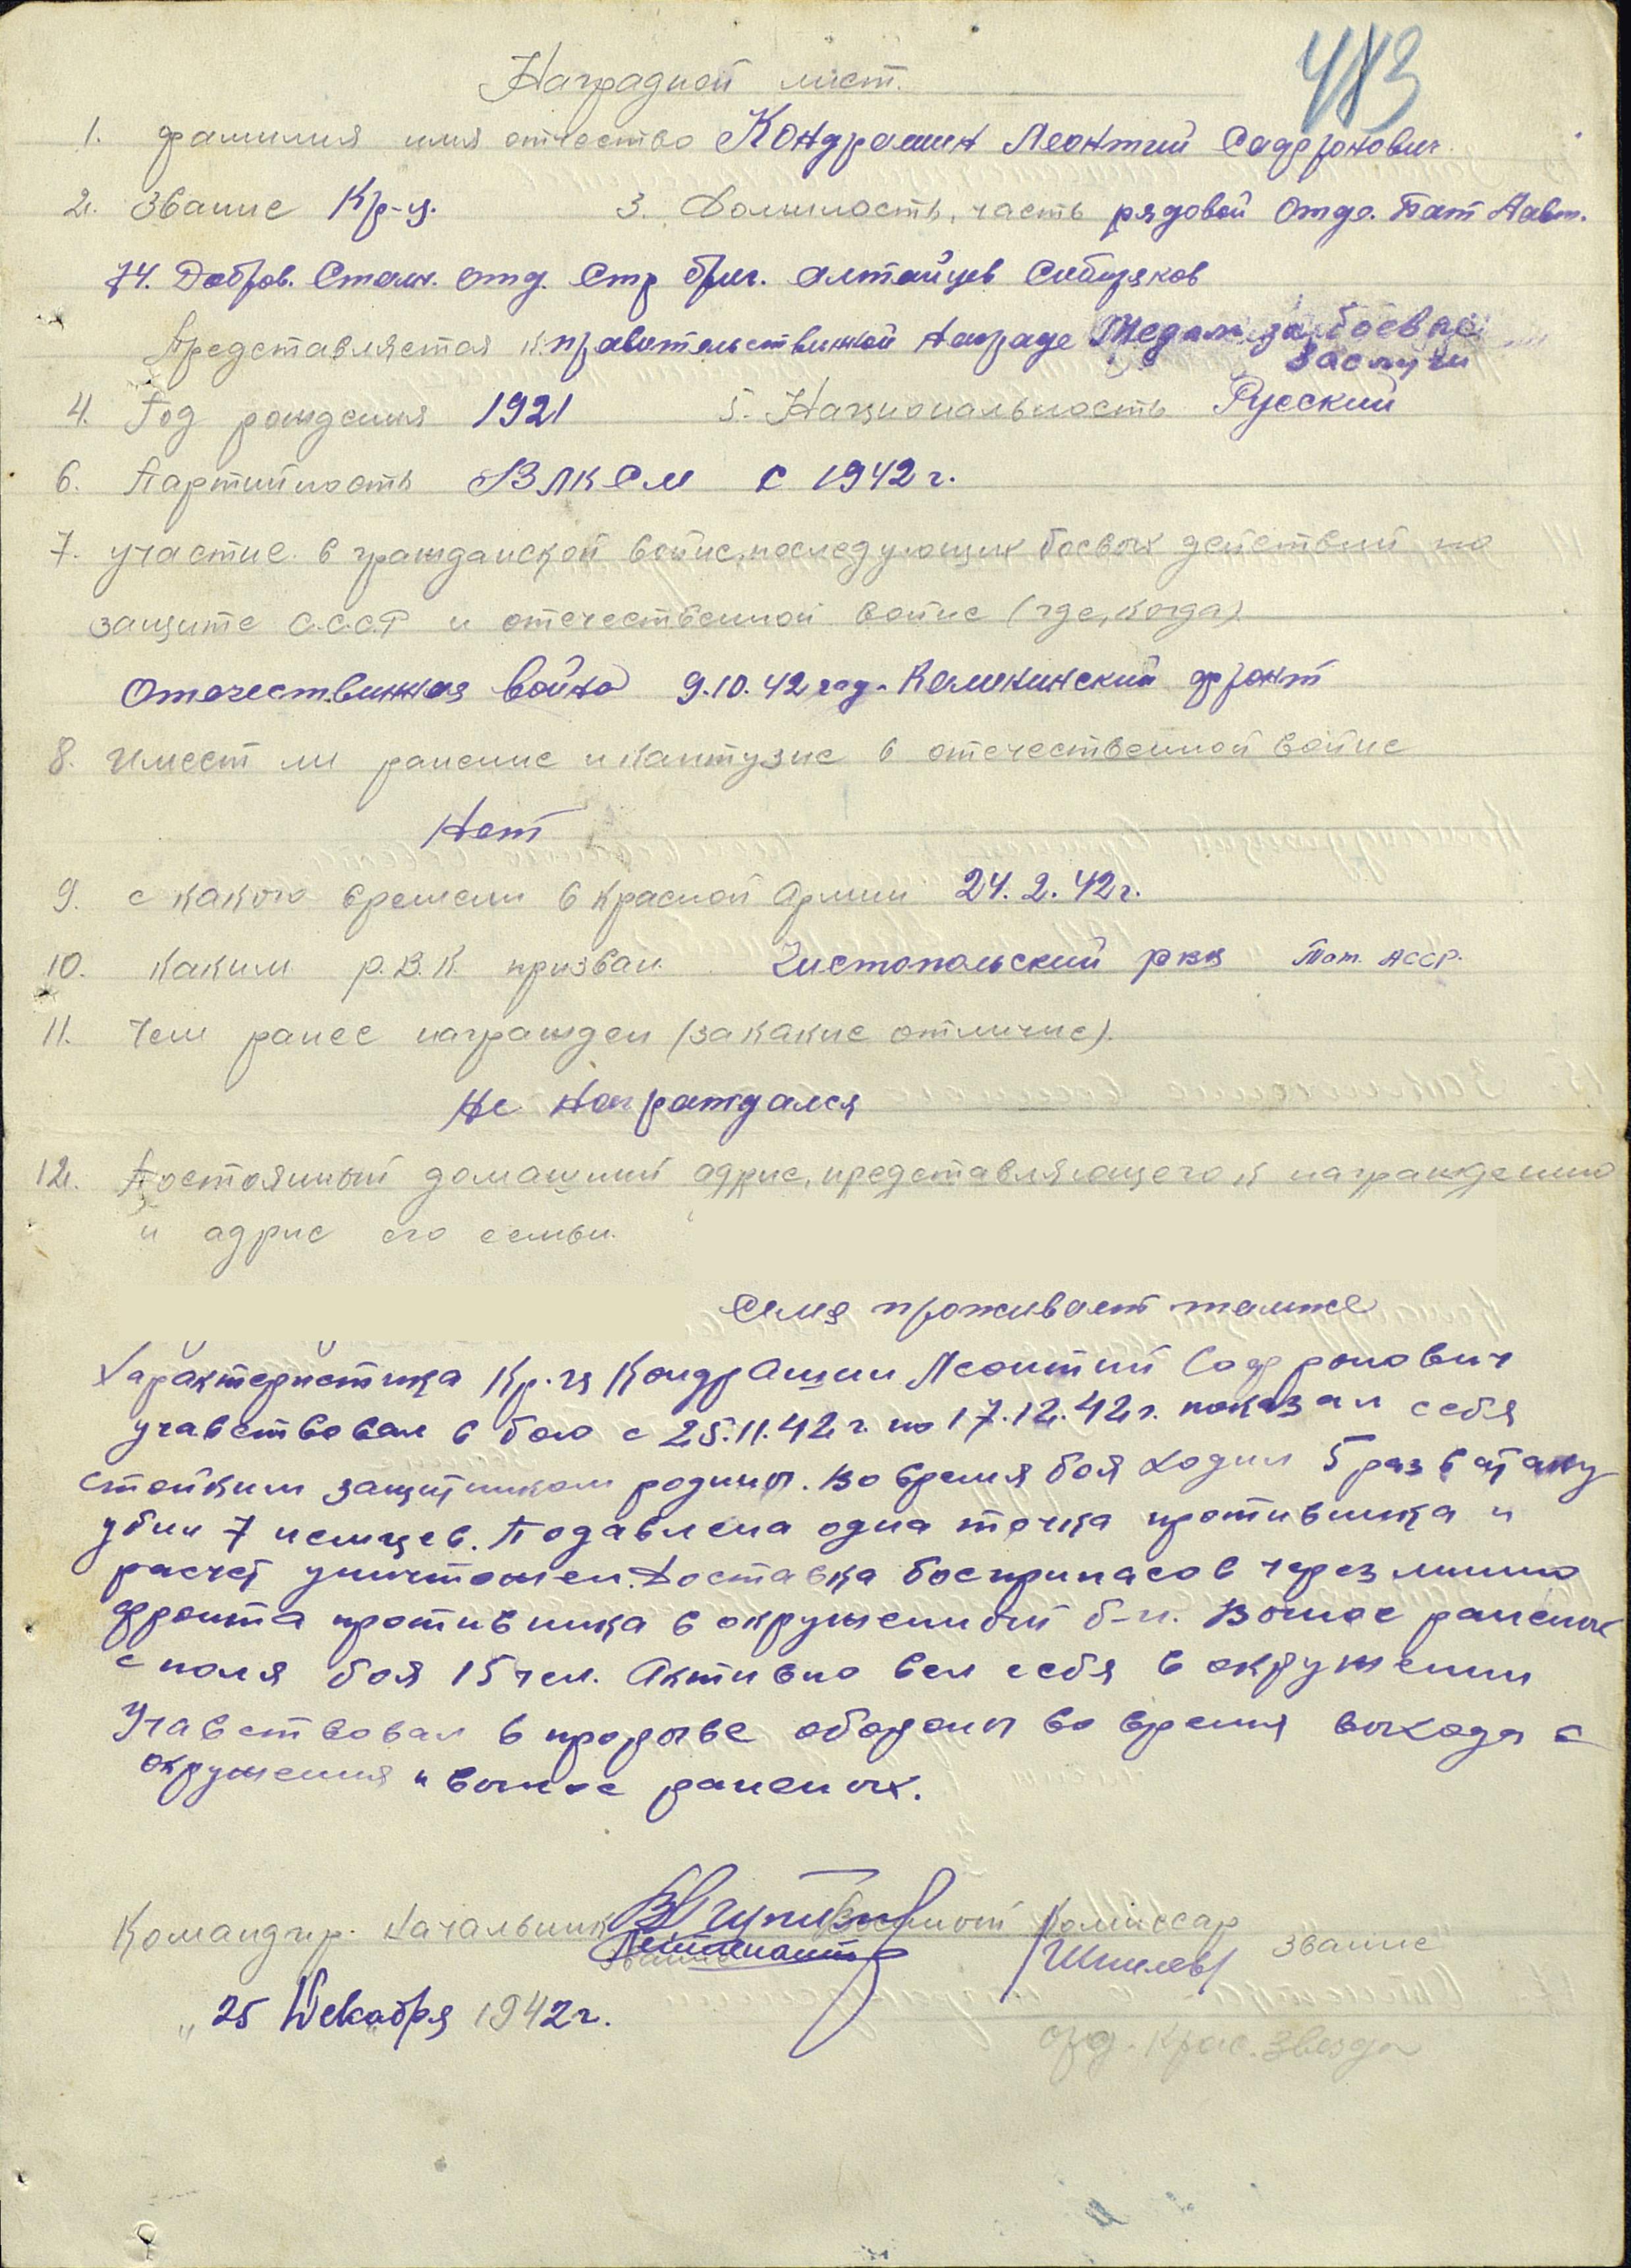 483
Наградной лист.
1. фамилия имя отчество Кондрашин Леонтий Садрронович
2. Звание Кр-ц. 3. Должность, часть рядовой Отде. Бат Авт.
74. Добров. Стали. отд. Стр бриг. алтайцев Сибиряков
Представляется к правительственной награде Медаль за боевые
заслуги
4. Год рождения 1921 5. Национальность Русский
6. Партийность ВЛКСМ с 1942 г.
7. участие в гражданской войне, последующих боевых действий по
защите С.С.С.Р и отечественной войне (где, когда)
Отечественная война 9.10.42 год. Калининский фронт
8. Имеет ли ранение и кантузие в отечественной войне
Нет
9. с какого времени в красной армии 24.2.42 г.
10. каким Р.В.К призван. Чистопольский рвк Тат. АССР.
11. Чем ранее награжден (за какие отличие).
Не Награждался
12. Постоянный домашний адрис, представляющего к награждению
и адрис его семьи.
Семя проживает тамже
Характеристика Кр-ц Кондрашин Леонтий Садрронович
учавствовал в бою с 25.11.42 г. по 17.12.42 г. показал себя
стойким защитником родины. Во время боя ходил 5 раз в атаку
убил 7 немцев. Подавлена одна точка противника и
расчет уничтожен. Доставка боеприпасов через линию
фронта противника в окруженный б-н. Вынос раненых
с поля боя 15 чел. Активно вел себя в окружении
Учавствовал в прорыве обороны во время выхода с
окружения и вынос раненых.
Командир. Начальник Военный Комиссар
Лейтенант звание
„25 Декабря 1942 г.
орд. Крас. Звезда